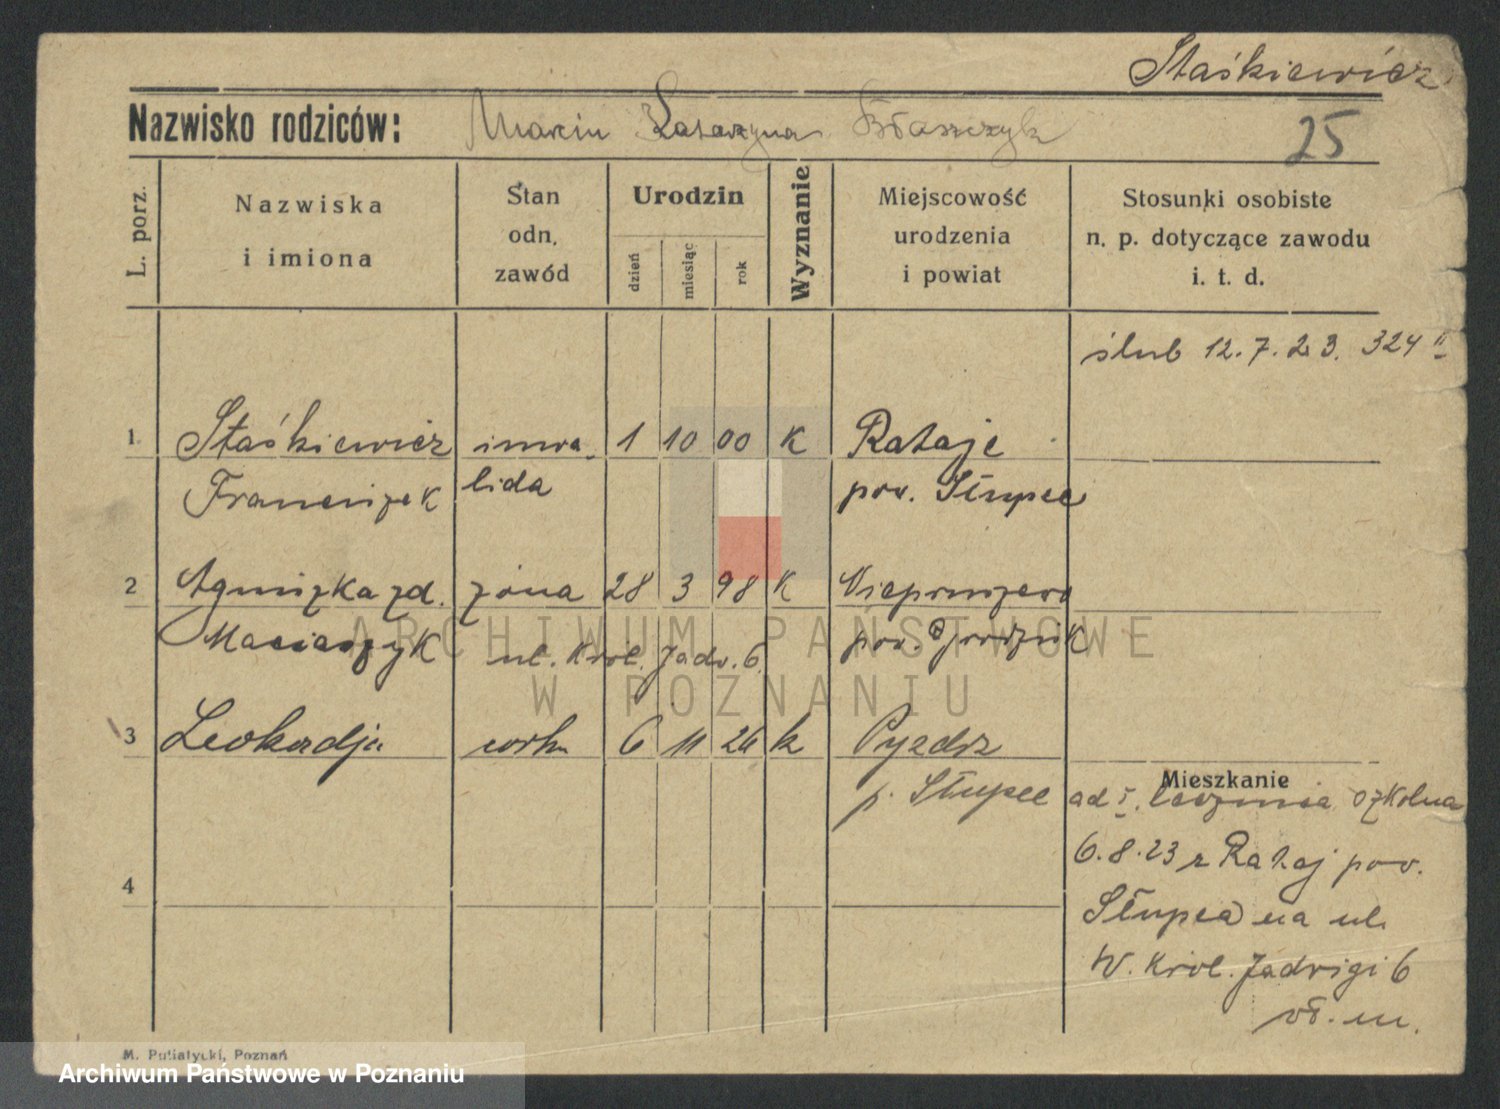 Staśkiewicz
Nazwisko rodziców: Marcin Katarzyna Błaszczyk
25
L. porz.
Nazwiska
i imiona
Stan
odn.
zawód
Urodzin
dzień
miesiąc
rok
Wyznanie
Miejscowość
urodzenia
i powiat
Stosunki osobiste
n. p. dotyczące zawodu
i. t. d.
ślub 12.7.23. 324
1. Staśkiewicz inwa- 1 10 00 K Rataje
Franciszek lida pow. Słupce
2 Agniszka zd. żona 28 3 98 K
Maciaszyk ul. Król. Jadw. 6. pow.
3 Leokadja córka 6 11 26 k Pyzdr
p. Słupce
Mieszkanie
ad 1. szkolna
6.8.23 z Rataj pow.
Słupca na ul.
W. Krol. Jadwigi 6
wł. m.
4
ARCHIWUM PAŃSTWOWE
W POZNANIU
M. Putiatycki, Poznań
Archiwum Państwowe w Poznaniu